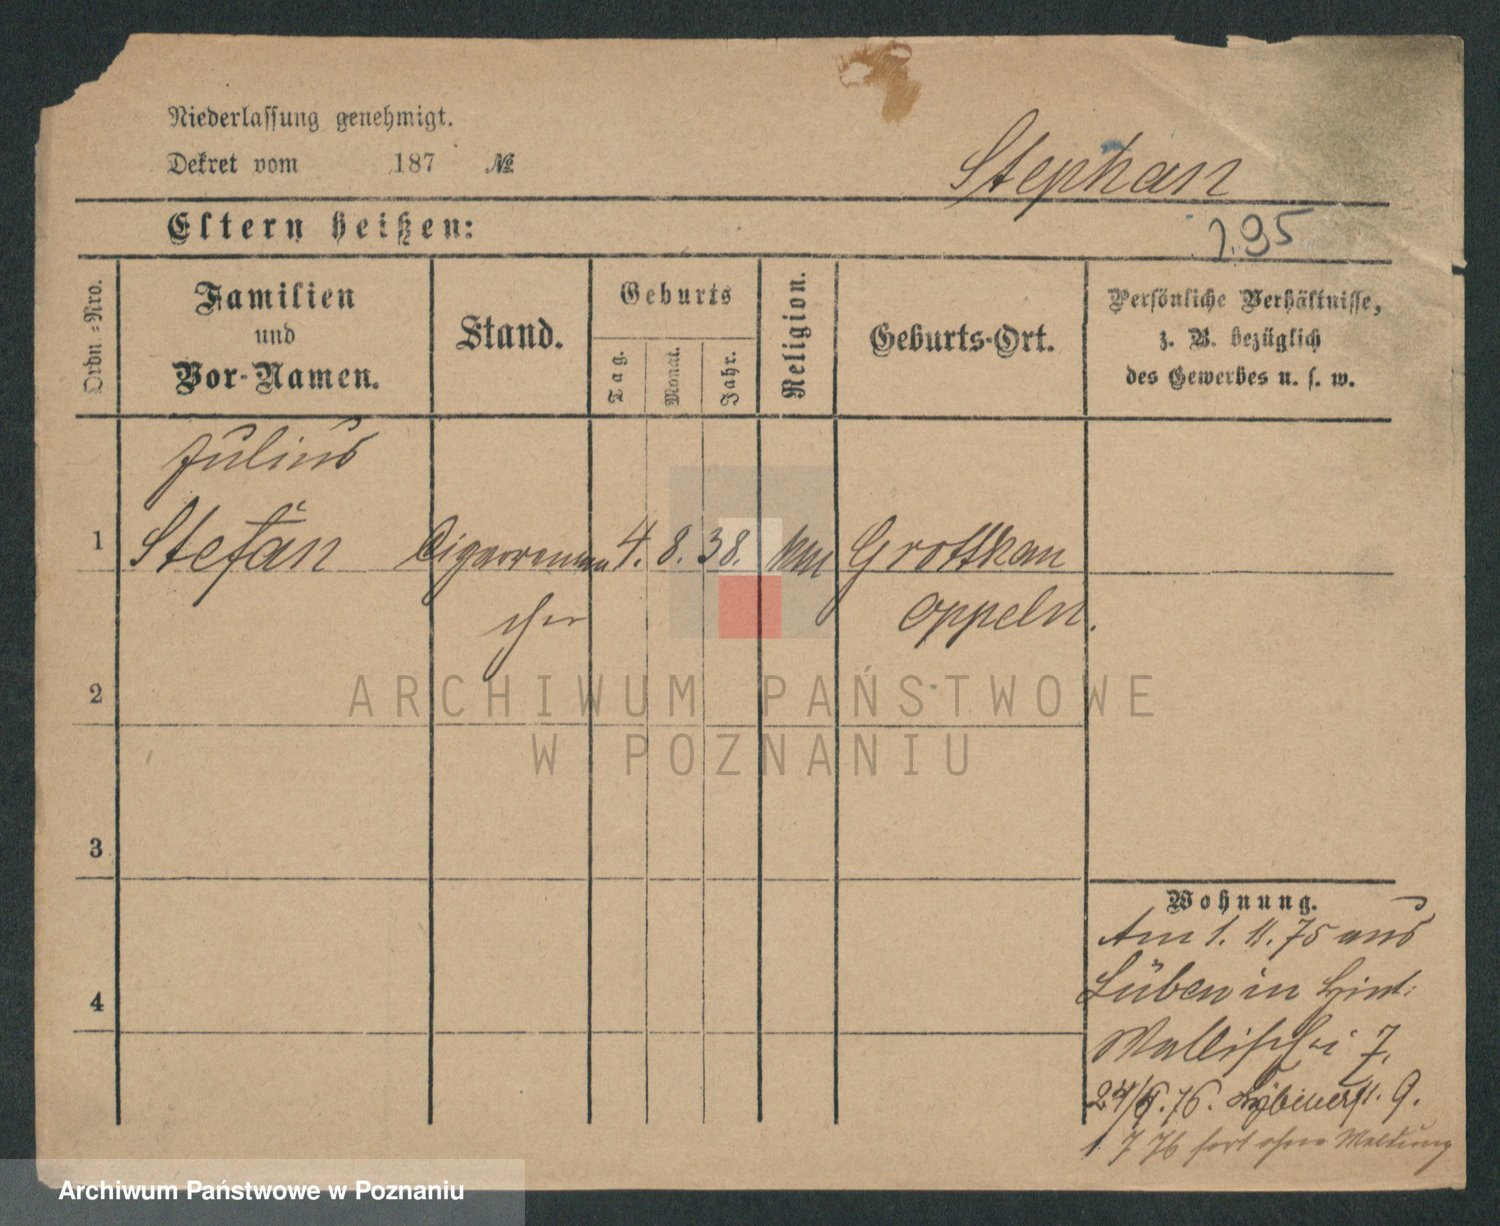 Niederlassung genehmigt.
Dekret vom 187 №
Stephan
195
Eltern heißen:
Ordn.-Nro.
Familien
und
Vor-Namen.
Stand.
Geburts
Tag.
Monat.
Jahr.
Religion.
Geburts-Ort.
Persönliche Verhältnisse,
z. B. bezüglich
des Gewerbes u. s. w.
Julius
1 Stefan Cigarrenma 4. 8. 38. Grottkau
cher Oppeln.
2
ARCHIWUM PAŃSTWOWE
W POZNANIU
3
Wohnung.
Am 1. 11. 75 aus
Lüben in Hint:
4
Wallischei 7.
24/6. 76. 9.
1 7 76 fort ohne Meldung
Archiwum Państwowe w Poznaniu